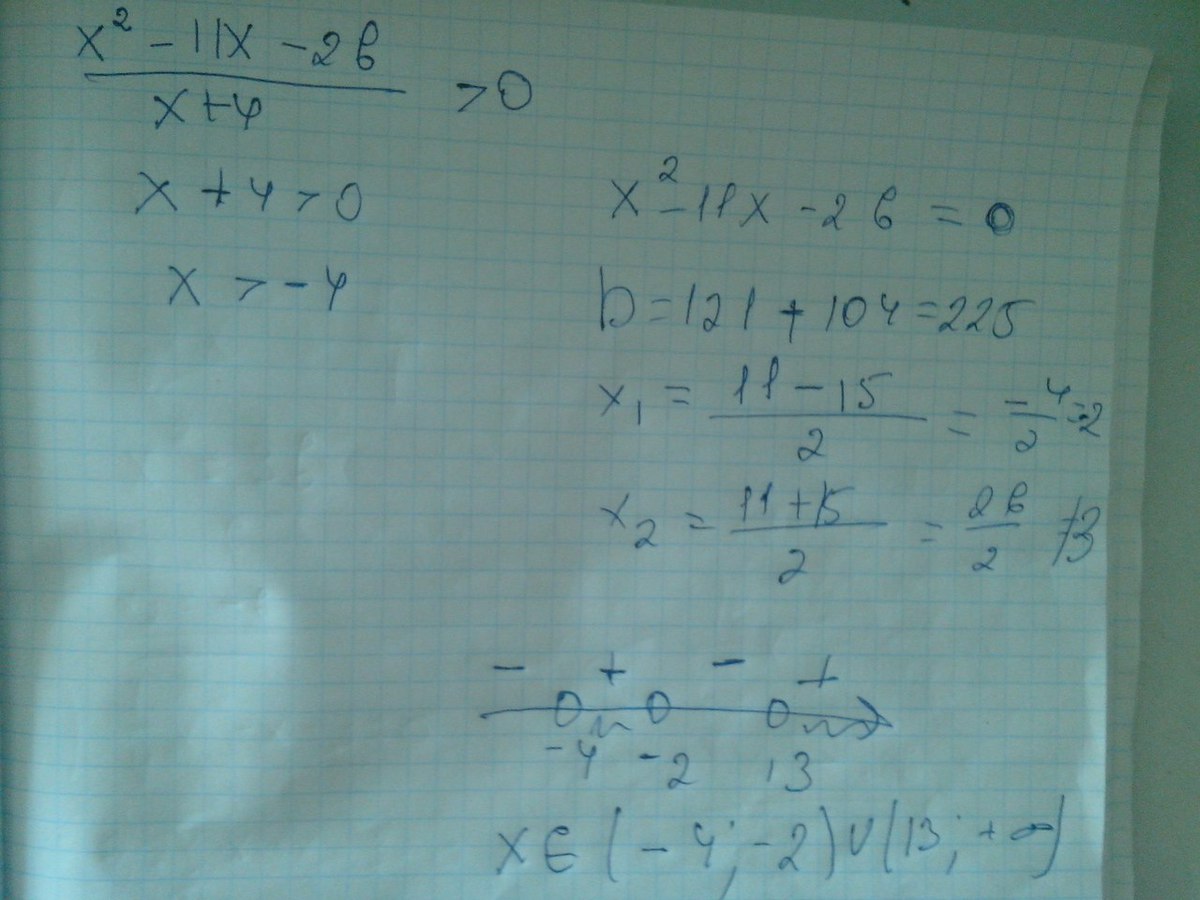 x² - 11x - 26
x+4
>0
x + 4 > 0
x > -4
x² - 11x - 26 = 0
D = 121 + 104 = 225
x₁ = (11 - 15)/2 = -4/2 = -2
x₂ = (11 + 15)/2 = 26/2 = 13
- + - +
-4 -2 13
x ∈ (-4; -2) ∪ (13; +∞)